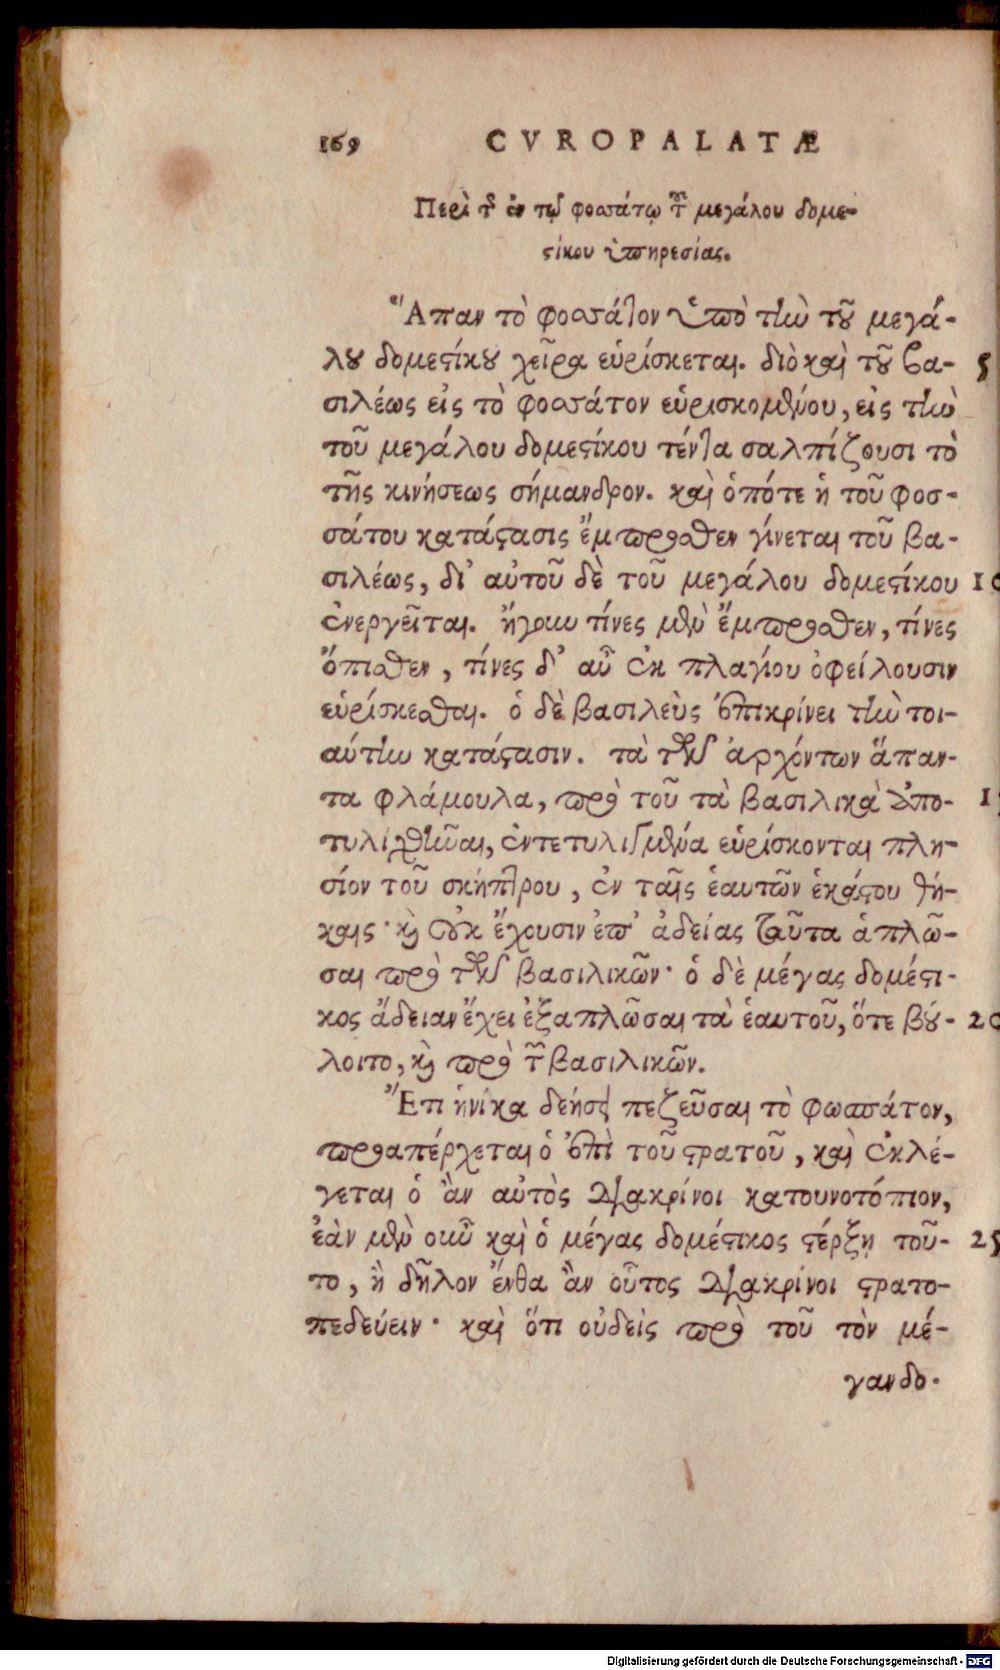 169 CVROPALATÆ
Περὶ τῆς ἐν τῷ φοσσάτῳ τοῦ μεγάλου δομε-
στίκου ὑπηρεσίας.
Ἅπαν τὸ φοσσάτον ὑπὸ τὴν τοῦ μεγά-
λου δομεστίκου χεῖρα εὑρίσκεται. διὸ καὶ τοῦ βα- 5
σιλέως εἰς τὸ φοσσάτον εὑρισκομένου, εἰς τὴν
τοῦ μεγάλου δομεστίκου τέντα σαλπίζουσι τὸ
τῆς κινήσεως σήμανδρον. καὶ ὁπότε ἡ τοῦ φοσ-
σάτου κατάστασις ἔμπροσθεν γίνεται τοῦ βα-
σιλέως, δι' αὐτοῦ δὲ τοῦ μεγάλου δομεστίκου 10
ἐνεργεῖται. ἤγουν τίνες μὲν ἔμπροσθεν, τίνες
ὄπισθεν, τίνες δ' αὖ ἐκ πλαγίου ὀφείλουσιν
εὑρίσκεσθαι. ὁ δὲ βασιλεὺς ἐπικρίνει τὴν τοι-
αύτην κατάστασιν. τὰ τῶν ἀρχόντων ἅπαν-
τα φλάμουλα, πρὸ τοῦ τὰ βασιλικὰ ἀπο- 15
τυλιχθῆναι, ἐντετυλιγμένα εὑρίσκονται πλη-
σίον τοῦ σκήπτρου, ἐν ταῖς ἑαυτῶν ἑκάστου θή-
καις· καὶ οὐκ ἔχουσιν ἐπ' ἀδείας ταῦτα ἁπλῶ-
σαι πρὸ τῶν βασιλικῶν· ὁ δὲ μέγας δομέστι-
κος ἄδειαν ἔχει ἐξαπλῶσαι τὰ ἑαυτοῦ, ὅτε βού- 20
λοιτο, καὶ πρὸ τῶν βασιλικῶν.
Ἔτι ἡνίκα δεήσει πεζεῦσαι τὸ φωσσάτον,
προαπέρχεται ὁ ἐπὶ τοῦ στρατοῦ, καὶ ἐκλέ-
γεται ὁ ἂν αὐτὸς διακρίνοι κατουνοτόπιον,
ἐὰν μὲν οὖν καὶ ὁ μέγας δομέστικος στέρξῃ τοῦ- 25
το, ἢ δῆλον ἔνθα ἂν οὗτος διακρίνοι στρατο-
πεδεύειν· καὶ ὅτι οὐδεὶς πρὸ τοῦ τὸν μέ-
γαν δο-
Digitalisierung gefördert durch die Deutsche Forschungsgemeinschaft - DFG